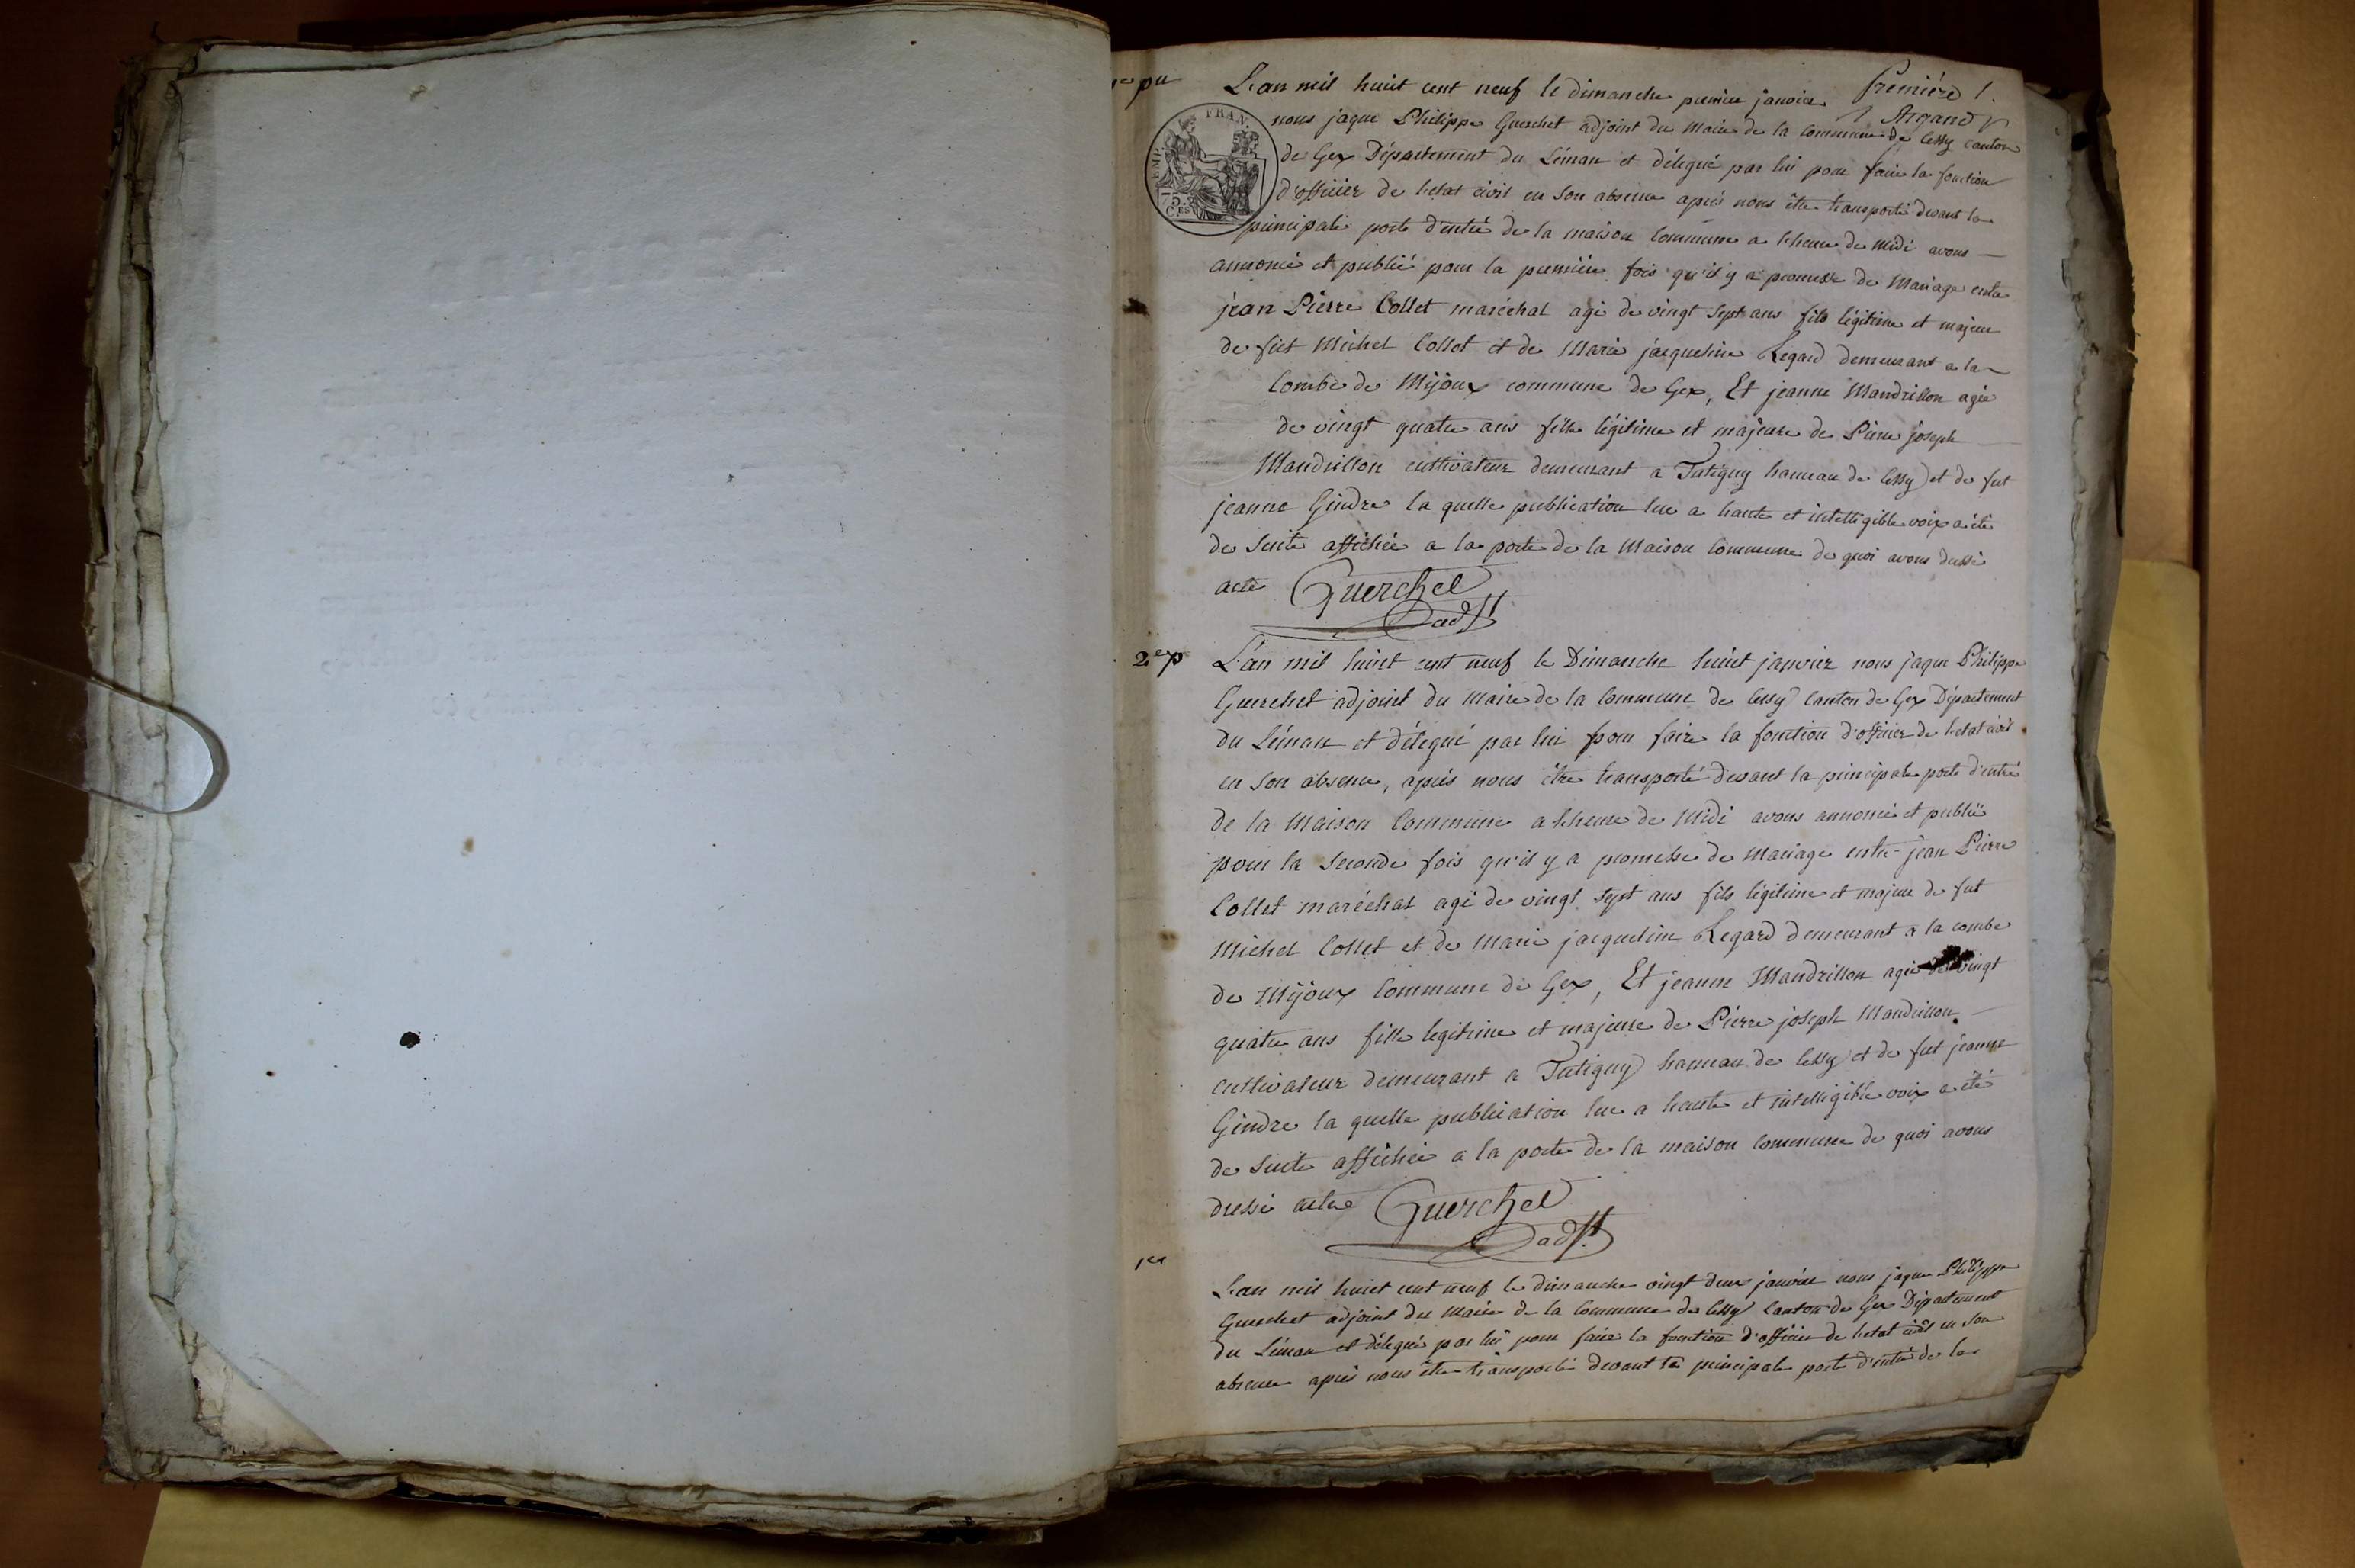 1re pu
L'an mil huit cent neuf le dimanche premier janvier
première 1.
Argand
nous jaque Philippe Guerchet adjoint du Maire de la commune de Cessy canton
EMP. FRAN.
75. CES
de Gex Département du Léman et délegué par lui pour faire la fonction
d'officier de letat civil en son absence après nous être transporté devant la
principale porte d'entré de la maison commune a lheure de Midi avons
annoncé et publié pour la première fois qu'il y a promesse de Mariage entre
jean Pierre Collet maréchal agé de vingt sept ans fils légitime et majeur
de fut Michel Collet et de Marie jacqueline Regard demeurant a la
Combe de Mijoux commune de Gex, Et jeanne Mandrillon agée
de vingt quatre ans fille légitime et majeure de Pierre joseph
Mandrillon cultivateur demeurant a Tutigny hameau de Cessy et de fut
jeanne Gindre la quelle publication lue a haute et intelligible voix a été
de suite affichée a la porte de la Maison commune de quoi avons dressé
acte Guerchet
adjt
2e p
L'an mil huit cent neuf le Dimanche huit janvier nous jaque Philippe
Guerchet adjoint du Maire de la commune de Cessy Canton de Gex Département
du Léman et délegué par lui pour faire la fonction d'officier de letat civil
en son absence, après nous être transporté devant la principale porte d'entré
de la Maison Commune a lheure de Midi avons annoncé et publié
pour la seconde fois qu'il y a promesse de Mariage entre jean Pierre
Collet maréchal agé de vingt sept ans fils légitime et majeur de fut
Michel Collet et de Marie jacqueline Regard demeurant a la combe
de Mijoux Commune de Gex, Et jeanne Mandrillon agée de vingt
quatre ans fille legitime et majeure de Pierre joseph Mandrillon
cultivateur demeurant a Tutigny hameau de Cessy et de fut jeanne
Gindre la quelle publication lue a haute et intelligible voix a été
de suite affichée a la porte de la maison commune de quoi avons
dressé acte Guerchet
adjt
1re
L'an mil huit cent neuf le dimanche vingt deux janvier nous jaque Philippe
Guerchet adjoint du Maire de la Commune de Cessy Canton de Gex Département
du Léman et délegué par lui pour faire la fonction d'officier de letat civil en son
absence après nous être transporté devant la principale porte d'entré de la